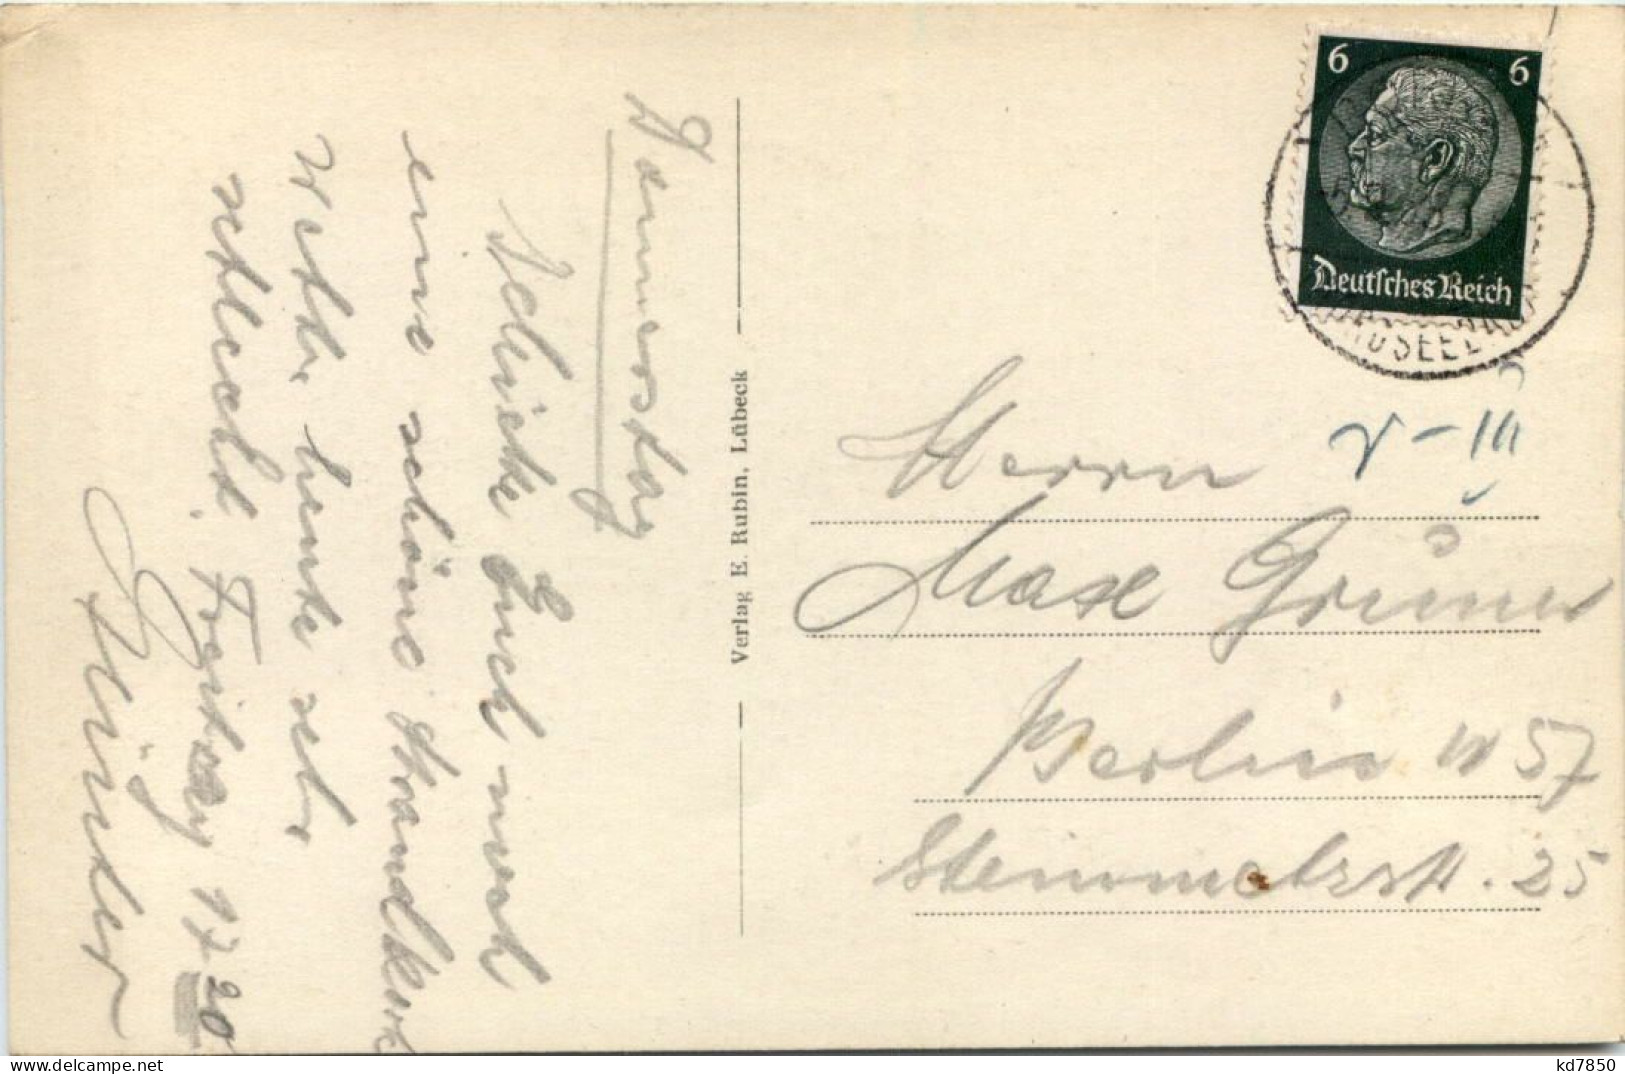 Donnerstag
Schicke Euch noch
eine schöne Strandkork
Wetter heute sehr
schlecht. Freitag 17 20
Günter
Verlag E. Rubin, Lübeck
6 6
Deutsches Reich
Herrn
Max Grimm
Berlin W 57
Steinmetzstr. 25
kd7850